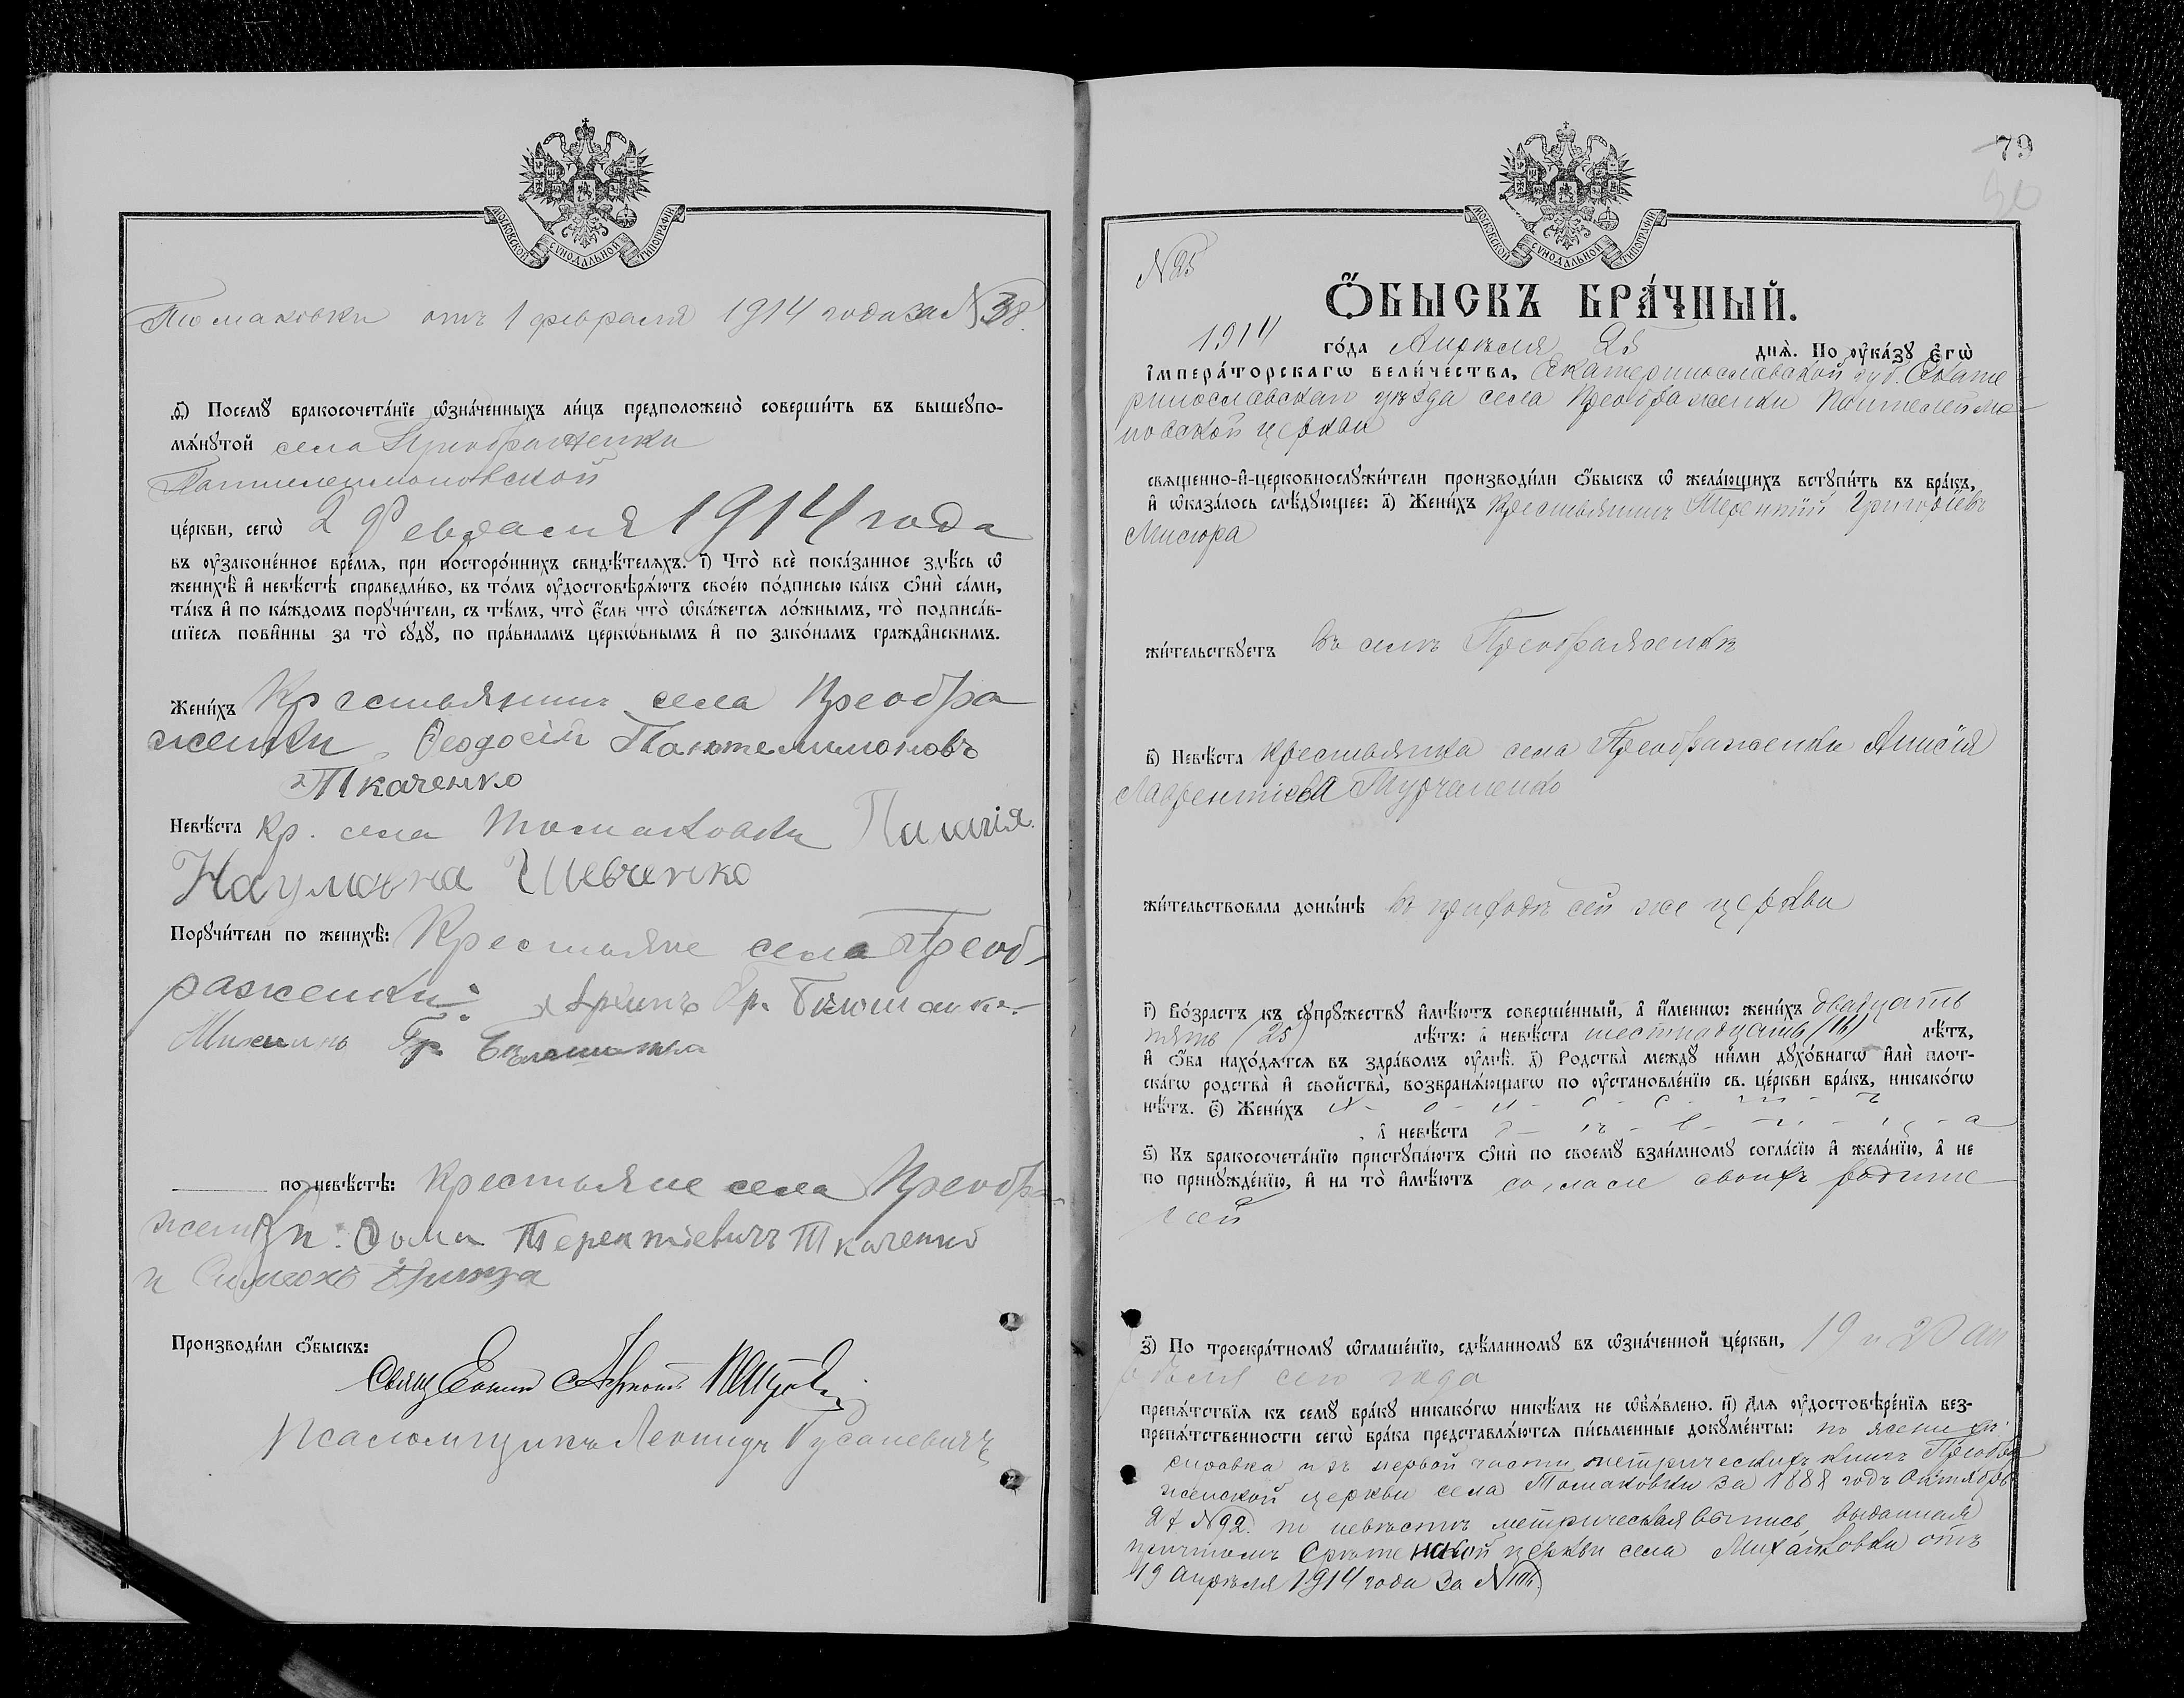 МОСКОВСКОЙ СѴНОДАЛЬНОЙ ТИПОГРАФІИ.
Томаковки отъ 1 февраля 1914 года за № 38.
ѕ҃) Посемꙋ̀ бракосочета́нїе ѡ҆зна́ченныхъ ли́цъ предположено̀ соверши́ть въ вышеꙋпо-
мѧ́нꙋтой села Преображенки
Пантелеимоновской
це́ркви, сегѡ̀ 2 Февраля 1914 года
въ ᲂу҆законе́нное вре́мѧ, при посторо́ннихъ свидѣ́телѧхъ. і҃) Что̀ всѐ пока́занное здѣ́сь ѡ҆
женихѣ̀ и҆ невѣ́стѣ справедли́во, въ то́мъ ᲂу҆достовѣрѧ́ютъ свое́ю по́дписью ка́къ ѻ҆нѝ са́ми,
та́къ и҆ по ка́ждомъ порꙋчи́тели, съ тѣ́мъ, что̀ є҆́сли что̀ ѡ҆ка́жетсѧ ло́жнымъ, то̀ подписа́в-
шїесѧ пови́нны за то̀ сꙋдꙋ̀, по пра́виламъ церко́внымъ и҆ по зако́намъ гражда́нскимъ.
Жени́хъ Крестьянинъ села Преобра
женки, Ѳеодосій Пантелимоновъ
Ткаченко
Невѣ́ста Кр. села Томаковки Пилагія
Наумовна Шевченко
Порꙋчи́тели по женихѣ̀: Крестьяне села Преоб-
раженки: Гр.
Гр.
по невѣ́стѣ: Крестьяне села Преобра
женки: Ѳома Терентіевичъ Ткаченко
и Симеонъ
Производи́ли ѻ҆́быскъ:
Свящ
Псаломщикъ Леонидъ Русаневичъ
79
90
МОСКОВСКОЙ СѴНОДАЛЬНОЙ ТИПОГРАФІИ.
№ 25
Ѻ҆́БЫСКЪ БРА́ЧНЫЙ.
1914 го́да Апрѣля 25 днѧ̀. По ᲂу҆ка́зꙋ Є҆гѡ̀
І҆мпера́торскагѡ Вели́чества, Екатеринославской губ. Екате
ринославскаго уѣзда села Преображенки Пантелеймо-
новской церкви
свѧщенно-и҆-церковнослꙋжи́тели производи́ли ѻ҆́быскъ ѡ҆ жела́ющихъ встꙋпи́ть въ бра́къ,
и҆ ѡ҆каза́лось слѣ́дꙋющее: а҃) Жени́хъ Крестьянинъ Терентій Григоріевъ
Мисюра
жи́тельствꙋетъ въ селѣ Преображенкѣ
в҃) Невѣ́ста крестьянка села Преображенки Анисія
Лаврентіева
жи́тельствовала доны́нѣ въ приходѣ сей же церкви
г҃) Во́зрастъ къ сꙋпрꙋ́жествꙋ и҆мѣ́ютъ соверше́нный, а҆ и҆́менно: жени́хъ двадцать
пять (25) лѣ́тъ: а҆ невѣ́ста шестнадцать (16) лѣ́тъ,
и҆ ѻ҆́ба нахо́дѧтсѧ въ здра́вомъ ᲂу҆мѣ̀. д҃) Родства̀ междꙋ̀ ни́ми дꙋхо́внагѡ и҆лѝ плот-
ска́гѡ родства̀ и҆ сво́йства̀, возбранѧ́ющагѡ по ᲂу҆становле́нїю св. це́ркви бра́къ, никако́гѡ
нѣ́тъ. є҃) Жени́хъ х - о - л - о - с - т - ъ
а҆ невѣ́ста д - ѣ - в - и - ц - а
ѕ҃) Къ бракосочета́нїю пристꙋпа́ютъ ѻ҆нѝ по своемꙋ̀ взаи́мномꙋ согла́сїю и҆ жела́нїю, а҆ не
по принꙋжде́нїю, и҆ на то̀ и҆мѣ́ютъ согласіе своихъ родите
лей
з҃) По троекра́тномꙋ ѡ҆глаше́нїю, сдѣ́ланномꙋ въ ѡ҆зна́ченной це́ркви, 19 и 20 ап
рѣля сего года
препѧ́тствїѧ къ семꙋ̀ бра́кꙋ никако́гѡ никѣ́мъ не ѡ҆бъѧ́влено. и҃) Длѧ ᲂу҆достовѣре́нїѧ без-
препѧ́тственности сегѡ̀ бра́ка представлѧ́ютсѧ пи́сьменные докꙋме́нты: по женихѣ
справка изъ первой части метрическихъ книгъ Преобра
женской церкви села Томаковки за 1888 годъ Октября
№ 92. по невѣстѣ метрическая выпись, выданная
причтомъ Срѣтенской церкви села Михайловки отъ
19 Апрѣля 1914 года за №